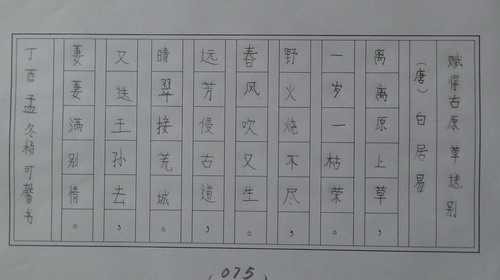 赋得古原草送别
(唐)白居易
离离原上草,
一岁一枯荣。
野火烧不尽,
春风吹又生。
远芳侵古道,
晴翠接荒城。
又送王孙去,
萋萋满别情。
丁酉孟冬杨可馨书
(075)